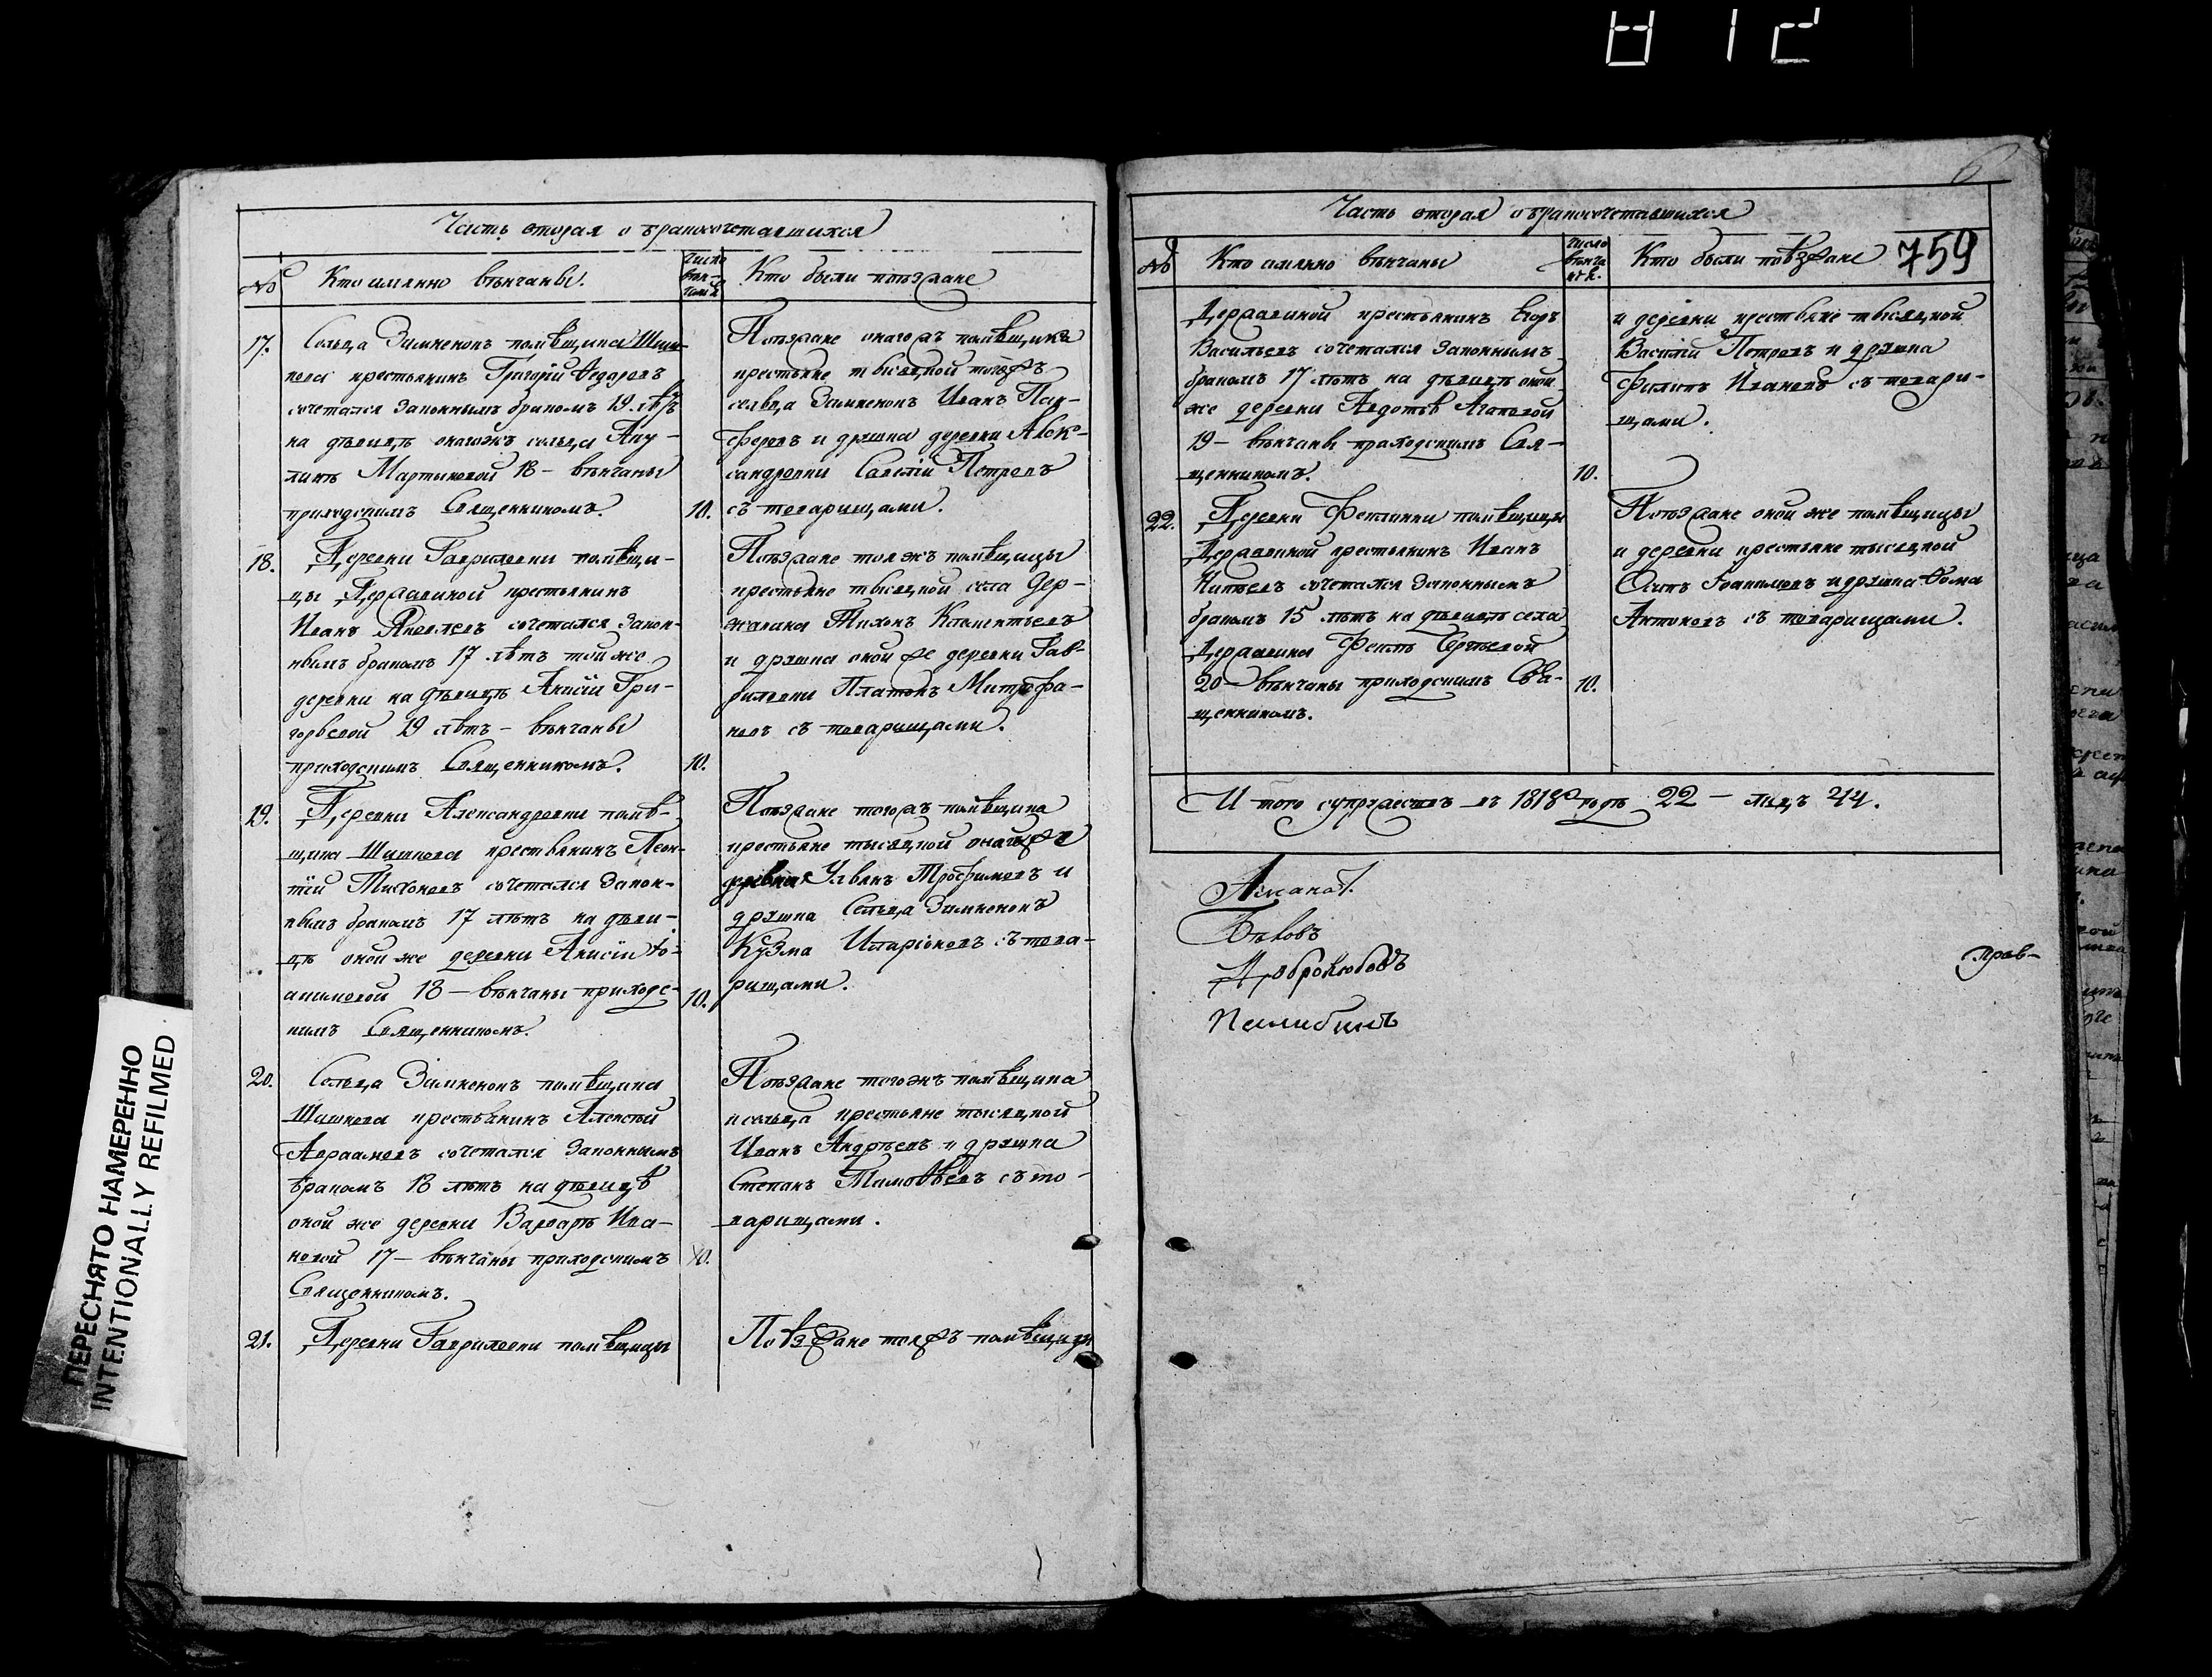 759
Часть вторая о бракосочетавшихся
№
Кто именно вѣнчаны.
Число вѣнчаній
Кто были поѣзжане
17.
Сельца Зимненокъ помѣщика Шиш-
кова крестьянинъ Григорій Ѳедоровъ
сочетался законнымъ бракомъ 19 лѣтъ
на дѣвицѣ оногожъ сельца Аку-
линѣ Мартыновой 18 – вѣнчаны
приходскимъ Священникомъ.
10.
Поѣзжане оногожъ помѣщика
крестьяне тысяцкой тогожъ
сельца Зимненокъ Иванъ Пан-
феровъ и дружка деревни Алек-
сандровки Савелій Петровъ
съ товарищами.
18.
Деревни Гавриловки помѣщи-
цы Державиной крестьянинъ
Иванъ Яковлевъ сочетался закон-
нымъ бракомъ 17 лѣтъ той же
деревни на дѣвицѣ Анисіи Гри-
горьевой 19 лѣтъ – вѣнчаны
приходскимъ Священникомъ.
10.
Поѣзжане тояжъ помѣщицы
крестьяне тысяцкой села Дер-
жавина Тихонъ Клементьевъ
и дружка оной же деревни Гав-
риловки Платонъ Митрофа-
новъ съ товарищами.
19.
Деревни Александровки помѣ-
щика Шишкова крестьянинъ Леон-
тій Тихоновъ сочетался закон-
нымъ бракомъ 17 лѣтъ на дѣви-
цѣ оной же деревни Анисіи Іо-
акимовой 18 – вѣнчаны приходс-
кимъ Священникомъ.
10.
Поѣзжане тогожъ помѣщика
крестьяне тысяцкой оной же
деревни Ульянъ Трофимовъ и
дружка Сельца Зимненокъ
Кузма Иларіоновъ съ това-
рищами.
20.
Сельца Зимненокъ помѣщика
Шишкова крестьянинъ Алексѣй
Авраамовъ сочетался законнымъ
бракомъ 18 лѣтъ на дѣвицѣ
оной же деревни Варварѣ Ива-
новой 17 – вѣнчаны приходскимъ
Священникомъ.
10.
Поѣзжане тогожъ помѣщика
и сельца крестьяне тысяцкой
Иванъ Андрѣевъ и дружка
Степанъ Тимоѳѣевъ съ то-
варищами.
21.
Деревни Гавриловки помѣщицы
Поѣзжане тояжъ помѣщицы
Часть вторая о бракосочетавшихся
№
Кто именно вѣнчаны
Кто были поѣзжане
Державиной крестьянинъ Егоръ
Васильевъ сочетался законнымъ
бракомъ 17 лѣтъ на дѣвицѣ оной
же деревни Авдотьѣ Агаповой
19 – вѣнчаны приходскимъ Свя-
щенникомъ.
10.
и деревни крестьяне тысяцкой
Василій Петровъ и дружка
Филипъ Ивановъ съ товари-
щами.
22.
Деревни Фетинки помѣщицы
Державиной крестьянинъ Иванъ
Никитъевъ сочетался законнымъ
бракомъ 15 лѣтъ на дѣвицѣ села
Державина Феклѣ Сергѣевой
20 – вѣнчаны приходскимъ Свя-
щенникомъ.
10.
Поѣзжане оной же помѣщицы
и деревни крестьяне тысяцкой
Осипъ Іоакимовъ и дружка Ѳома
Антоновъ съ товарищами.
И того супружествъ въ 1818 годѣ 22 – лицъ 44.
Быковъ
Добролюбовъ
прав-
ПЕРЕСНЯТО НАМЕРЕННО
INTENTIONALLY REFILMED